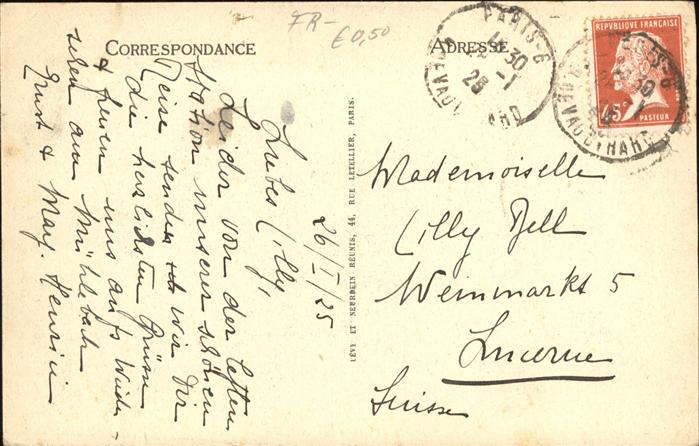 FR-
€0,50
CORRESPONDANCE
ADRESSE
PARIS-6
R. DE VAUGIRARD
1030
26-1
25
RÉPUBLIQUE FRANÇAISE
45c
PASTEUR
26/I/25
Liebes Lilly,
Leider von der letzten
Station unserer schönen
Reise senden wir Dir
die herzlichsten Grüsse
& freuen uns aufs Wieder-
sehen am Mühlebach
Ernst & Marg. Henrici
LÉVY ET NEURDEIN RÉUNIS, 44, RUE LETELLIER, PARIS.
Mademoiselle
Lilly Bell
Weinmarkt 5
Lucerne
Suisse